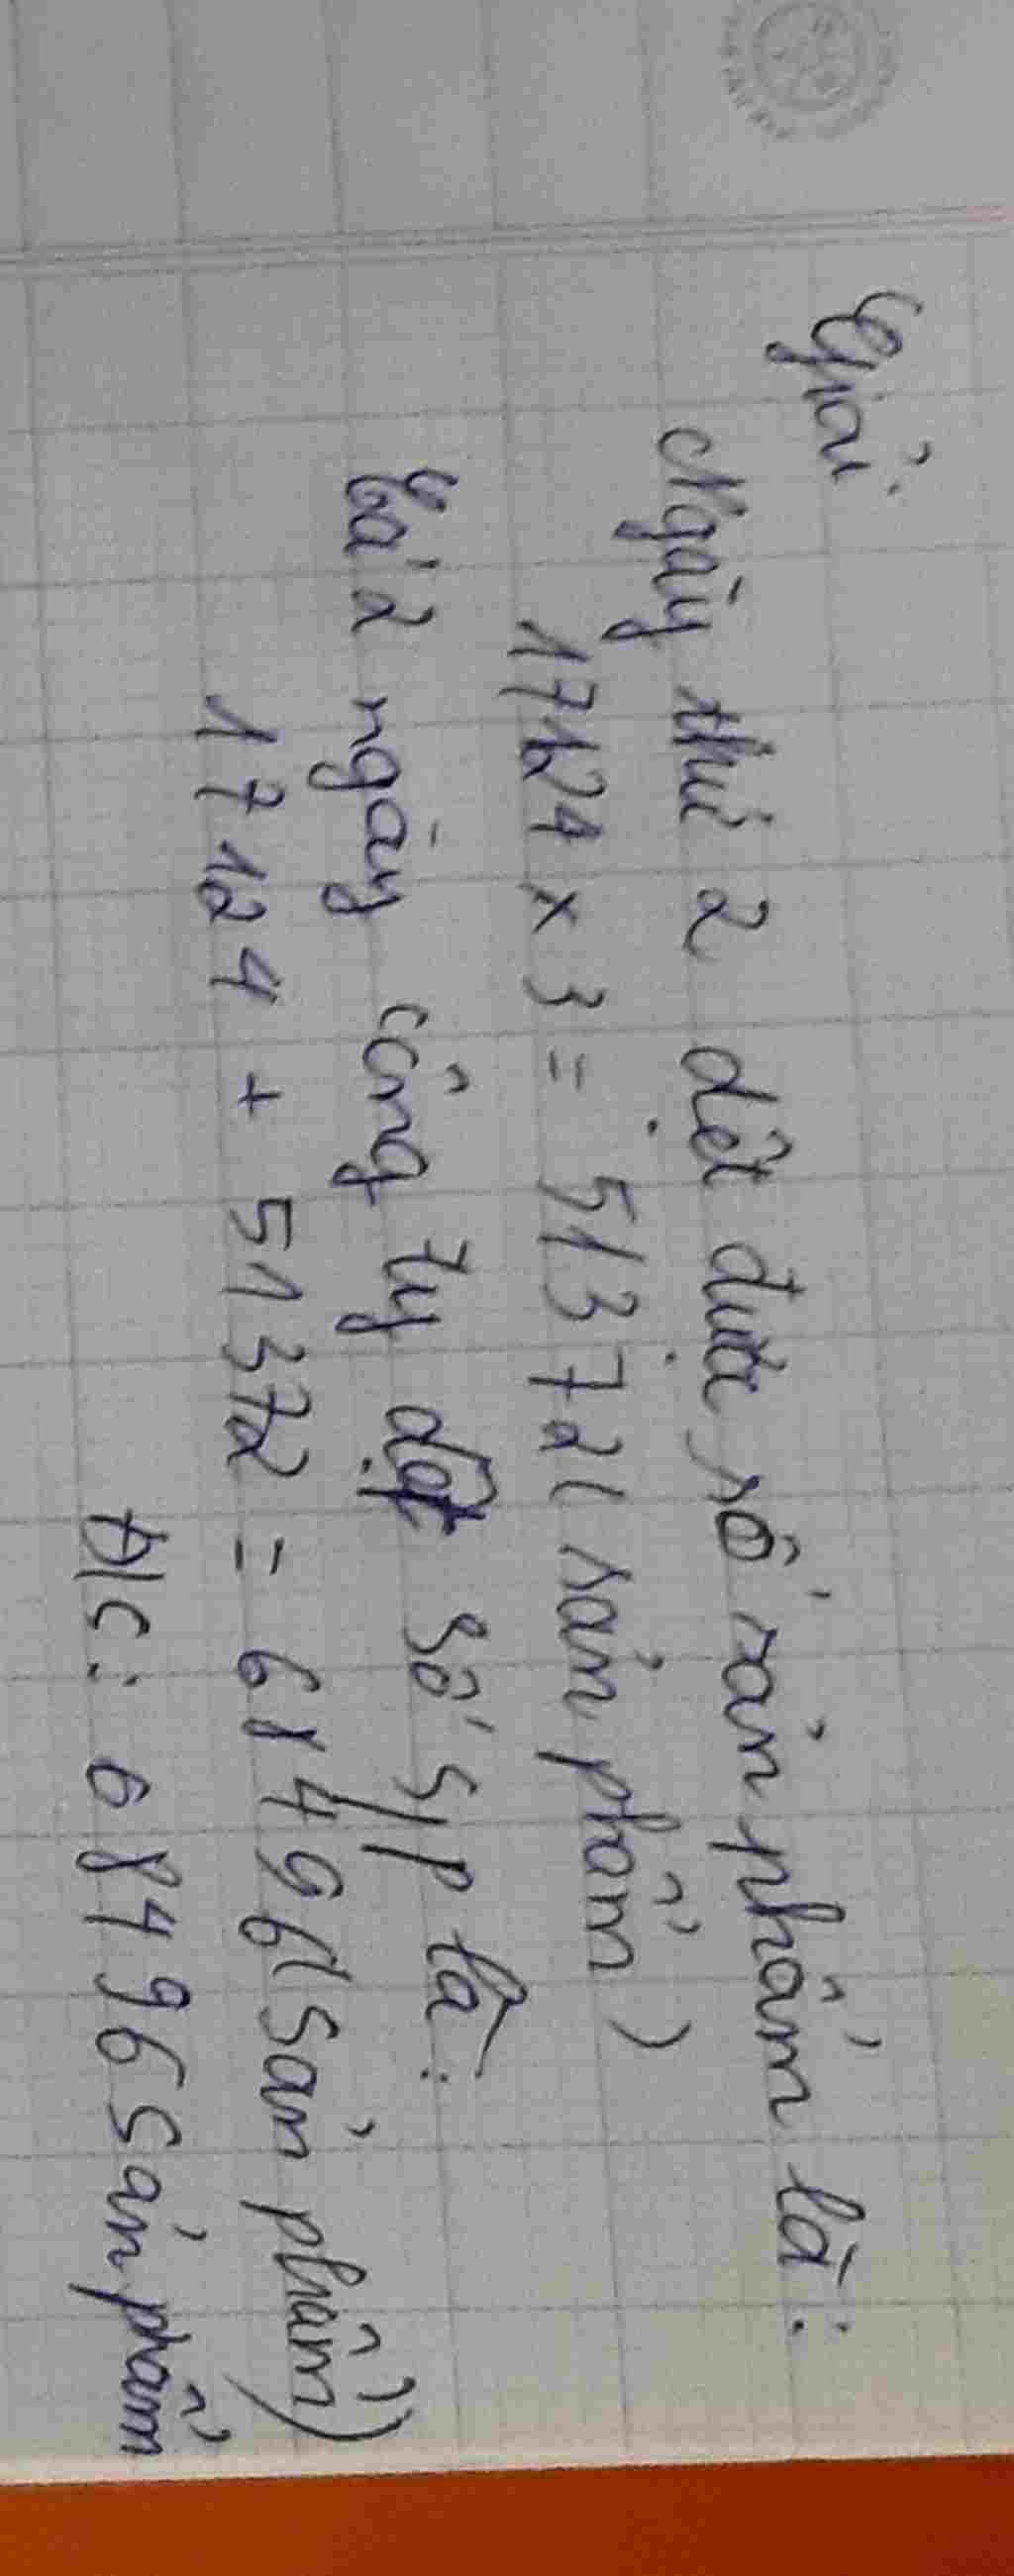 Giải
Ngày thứ 2 dệt được số sản phẩm là:
17124 x 3 = 51372 (sản phẩm)
Cả 2 ngày công ty dệt số s/p là:
17124 + 51372 = 68496 (sản phẩm)
Đ/S: 68496 sản phẩm